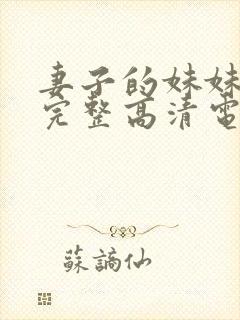 妻子的妹妹
完整高清电
蘇謫仙